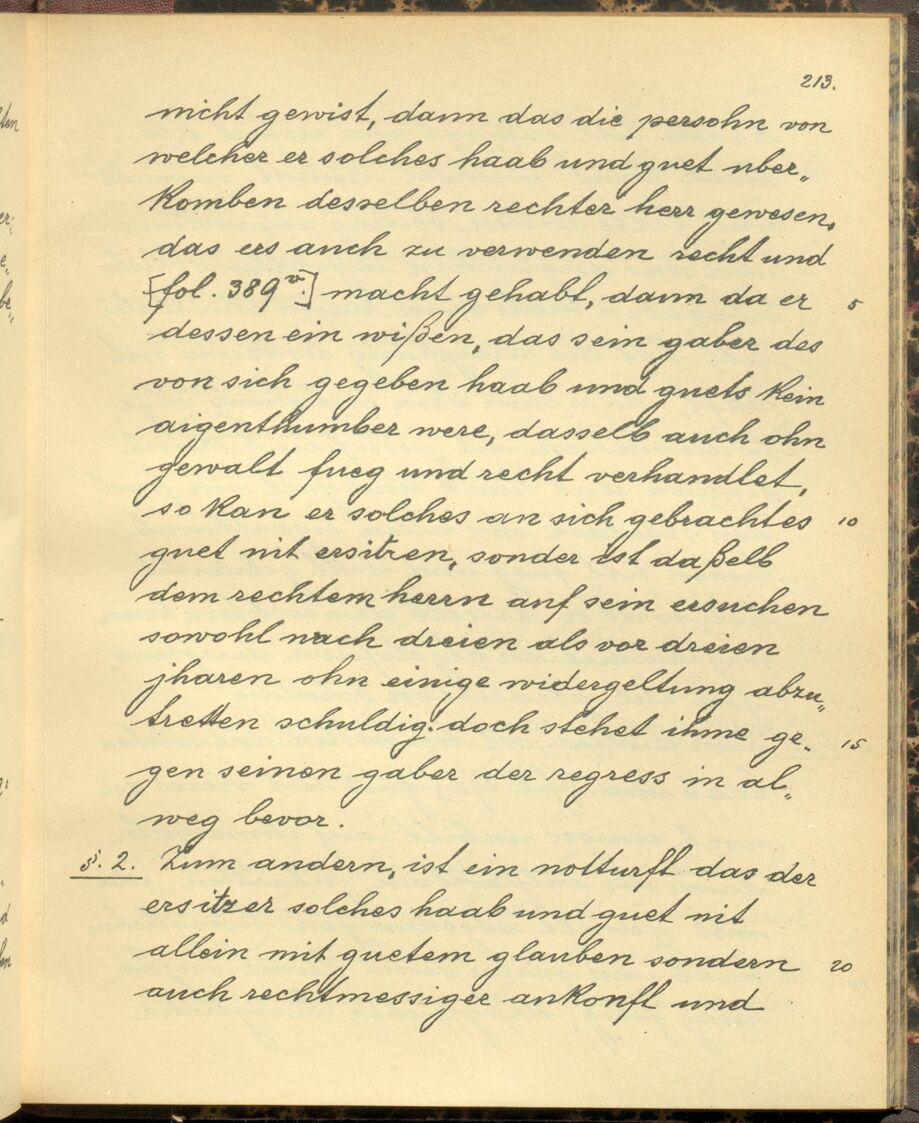 213.
nicht gewist, dann das die persohn von
welcher er solches haab und guet uber„
komben desselben rechter herr gewesen,
das ers auch zu verwenden recht und
[fol. 389v.] macht gehabt, dann da er 5
dessen ein wißen, das sein gaber des
von sich gegeben haab und guets kein
aigenthumber were, dasselb auch ohn
gewalt fueg und recht verhandlet,
so kan er solches an sich gebrachtes 10
guet nit ersitzen, sonder ist daßelb
dem rechtem herrn auf sein ersuchen
sowohl nach dreien als vor dreien
jharen ohn einige widergeltung abzu„
tretten schuldig: doch stehet ihme ge„ 15
gen seinen gaber der regress in al„
weg bevor.
§. 2. Zum andern, ist ein notturft das der
ersitzer solches haab und guet nit
allein mit guetem glauben sondern 20
auch rechtmessiger ankonft und